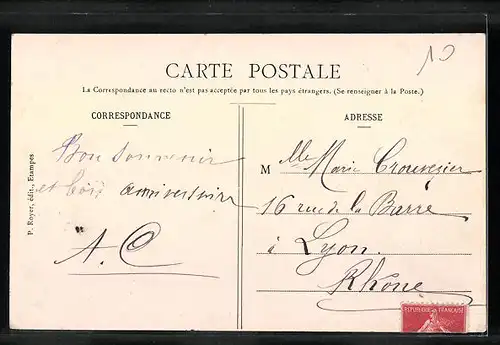 10
CARTE POSTALE
La Correspondance au recto n'est pas acceptée par tous les pays étrangers. (Se renseigner à la Poste.)
CORRESPONDANCE
Bon souvenir
et bon anniversaire
A. C
P. Royer, édit., Etampes
ADRESSE
M lle Marie
16 rue de la Barre
à Lyon.
Rhône
REPUBLIQUE FRANÇAISE